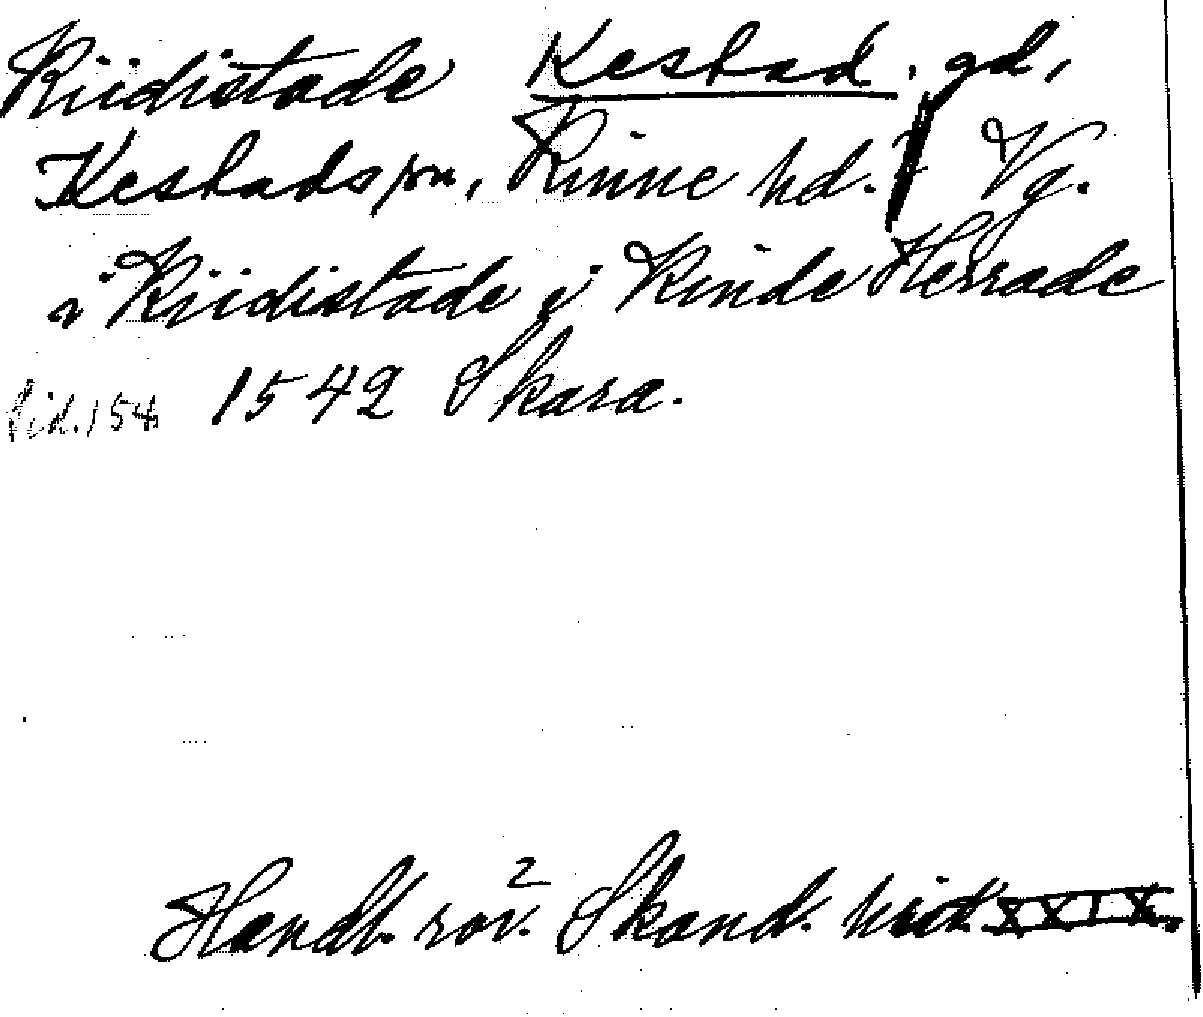 Kiidistade Kestad. gd,
Kestads sn, Kinne hd. Vg.
i Kiidistade i Kinde Herrade
Sid. 154 1542 Skara.
Handl. rör. Skand. hist. XXIX.